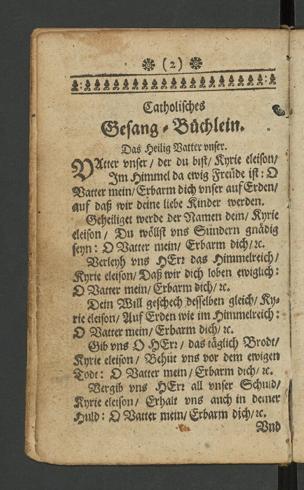 (2)
Catholisches
Gesang-Büchlein.
Das Heilig Vatter vnser.
VAtter vnser/ der du bist/ Kyrie eleison/
Im Himmel da ewig Freüde ist: O
Vatter mein/ Erbarm dich vnser auf Erden/
auf daß wir deine liebe Kinder werden.
Geheiliget werde der Namen dein/ Kyrie
eleison/ Du wöllst vns Sündern gnädig
seyn: O Vatter mein/ Erbarm dich/ ꝛc.
Verleyh vns HErr das Himmelreich/
Kyrie eleison/ Daß wir dich loben ewiglich:
O Vatter mein/ Erbarm dich/ ꝛc.
Dein Will geschech desselben gleich/ Ky-
rie eleison/ Auf Erden wie im Himmelreich:
O Vatter mein/ Erbarm dich/ ꝛc.
Gib vns O HErr/ das täglich Brodt/
Kyrie eleison/ Behüt vns vor dem ewigen
Todt: O Vatter mein/ Erbarm dich/ ꝛc.
Vergib vns HErr all vnser Schuld/
Kyrie eleison/ Erhalt vns auch in deiner
Huld: O Vatter mein/ Erbarm dich/ ꝛc.
Vnd